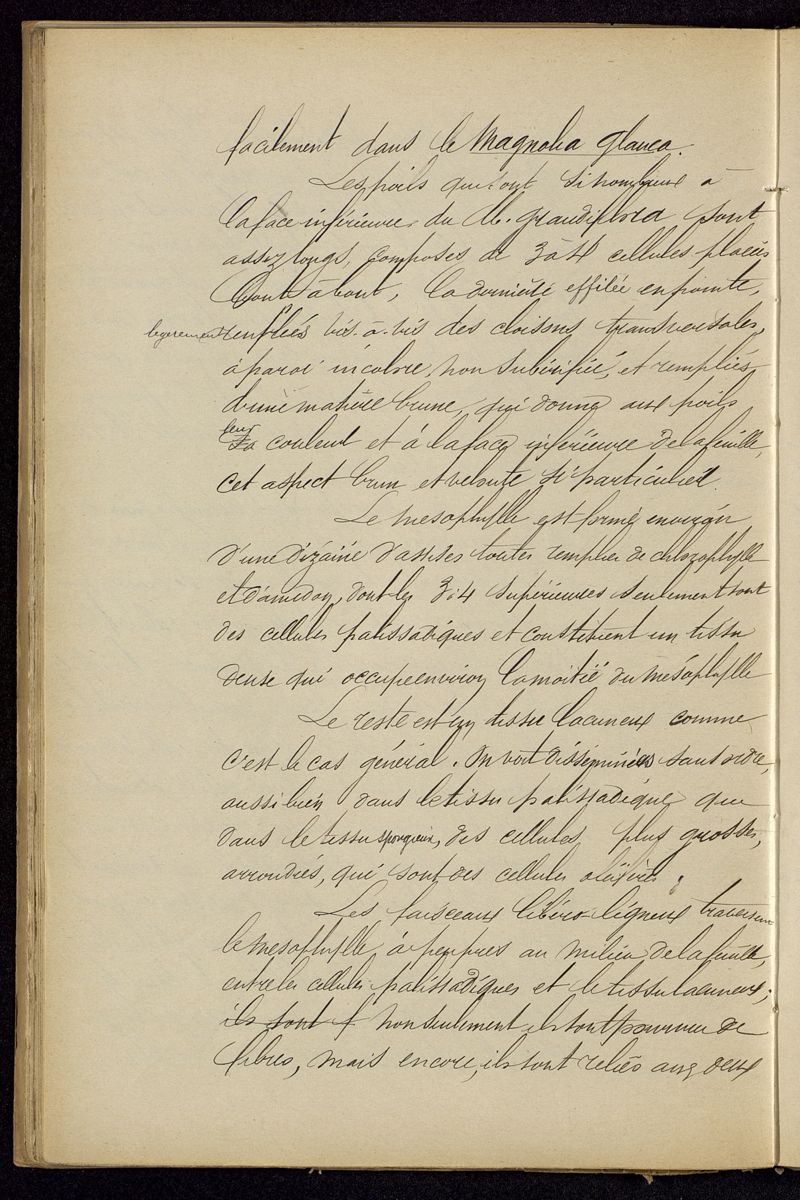 facilement dans le Magnolia glauca.
Les poils qui sont si nombreux à
la face inférieure du M. grandiflora sont
assez longs, composés de 3 à 4 cellules placées
bout à bout, la dernière effilée en pointe,
légèrement renflées vis-à-vis des cloisons transversales,
à paroi incolore, non subérifiée, et remplies
d'une matière brune, qui donne aux poils
leur couleur et à la face inférieure de la feuille,
cet aspect brun et velouté si particulier.
Le mésophylle est formé environ
d'une dizaine d'assises toutes remplies de chlorophylle
et d'amidon, dont les 3 à 4 supérieures seulement sont
des cellules palissadiques et constituent un tissu
dense qui occupe environ la moitié du mésophylle
Le reste est un tissu lacuneux comme
c'est le cas général. On voit disséminées sans ordre,
aussi bien dans le tissu palissadique que
dans le tissu spongieux, des cellules plus grosses,
arrondies, qui sont des cellules oléifères.
Les faisceaux libéro-ligneux traversent
le mésophylle à peu près au milieu de la feuille,
entre les cellules palissadiques et le tissu lacuneux;
ils sont f non seulement ils sont pourvus de
fibres, mais encore, ils sont reliés aux deux